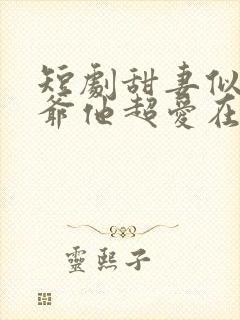 短劇甜妻似
爺他超愛在
靈熙子